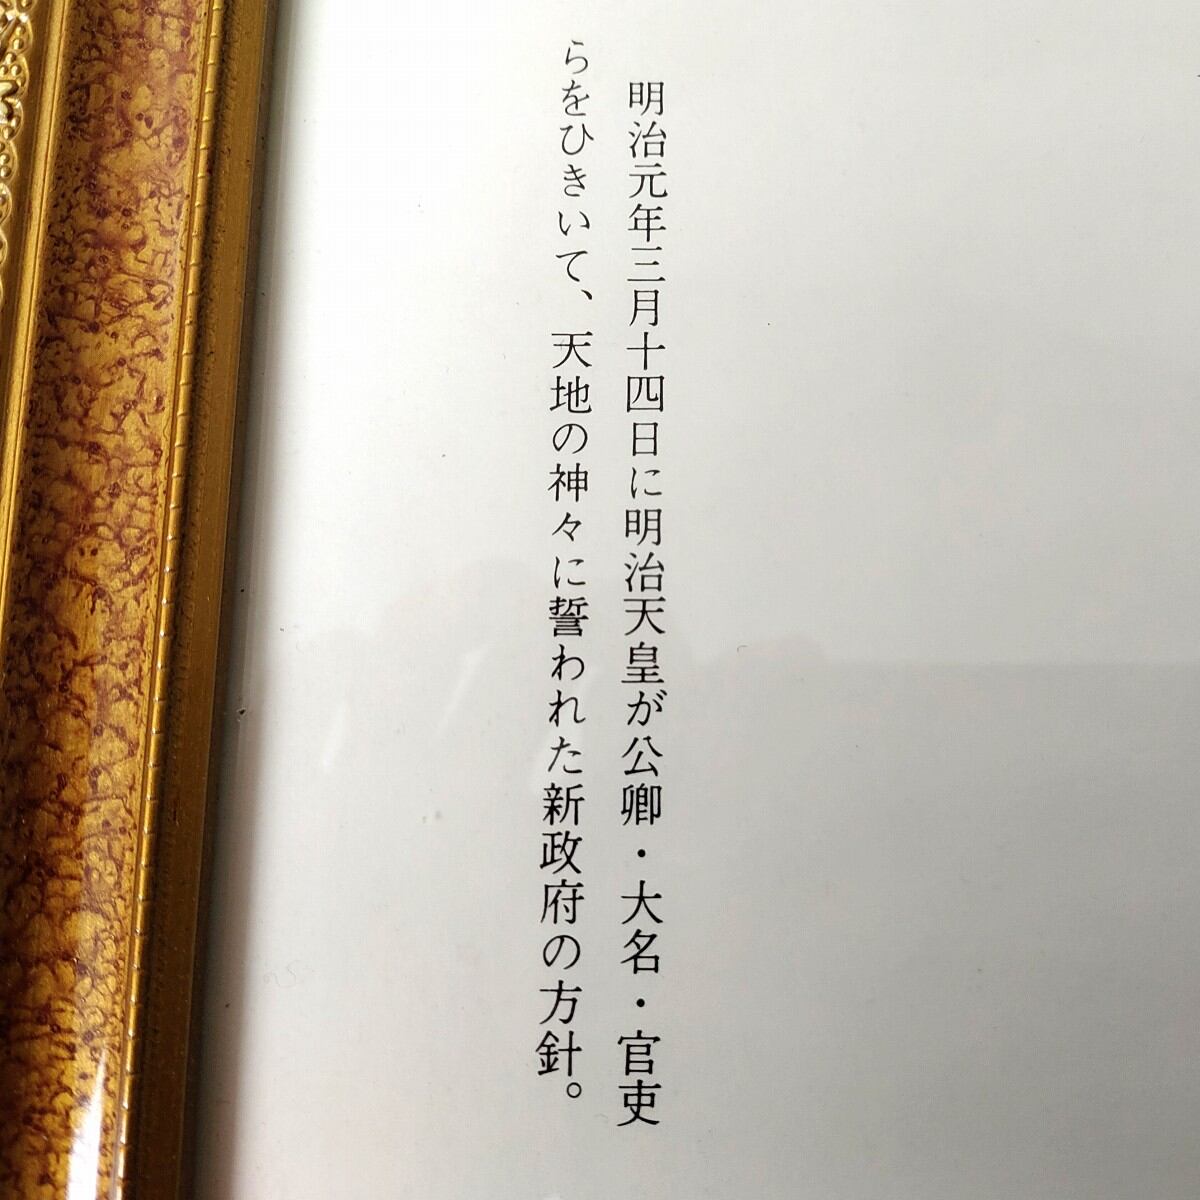 明治元年三月十四日に明治天皇が公卿・大名・官吏
らをひきいて、天地の神々に誓われた新政府の方針。